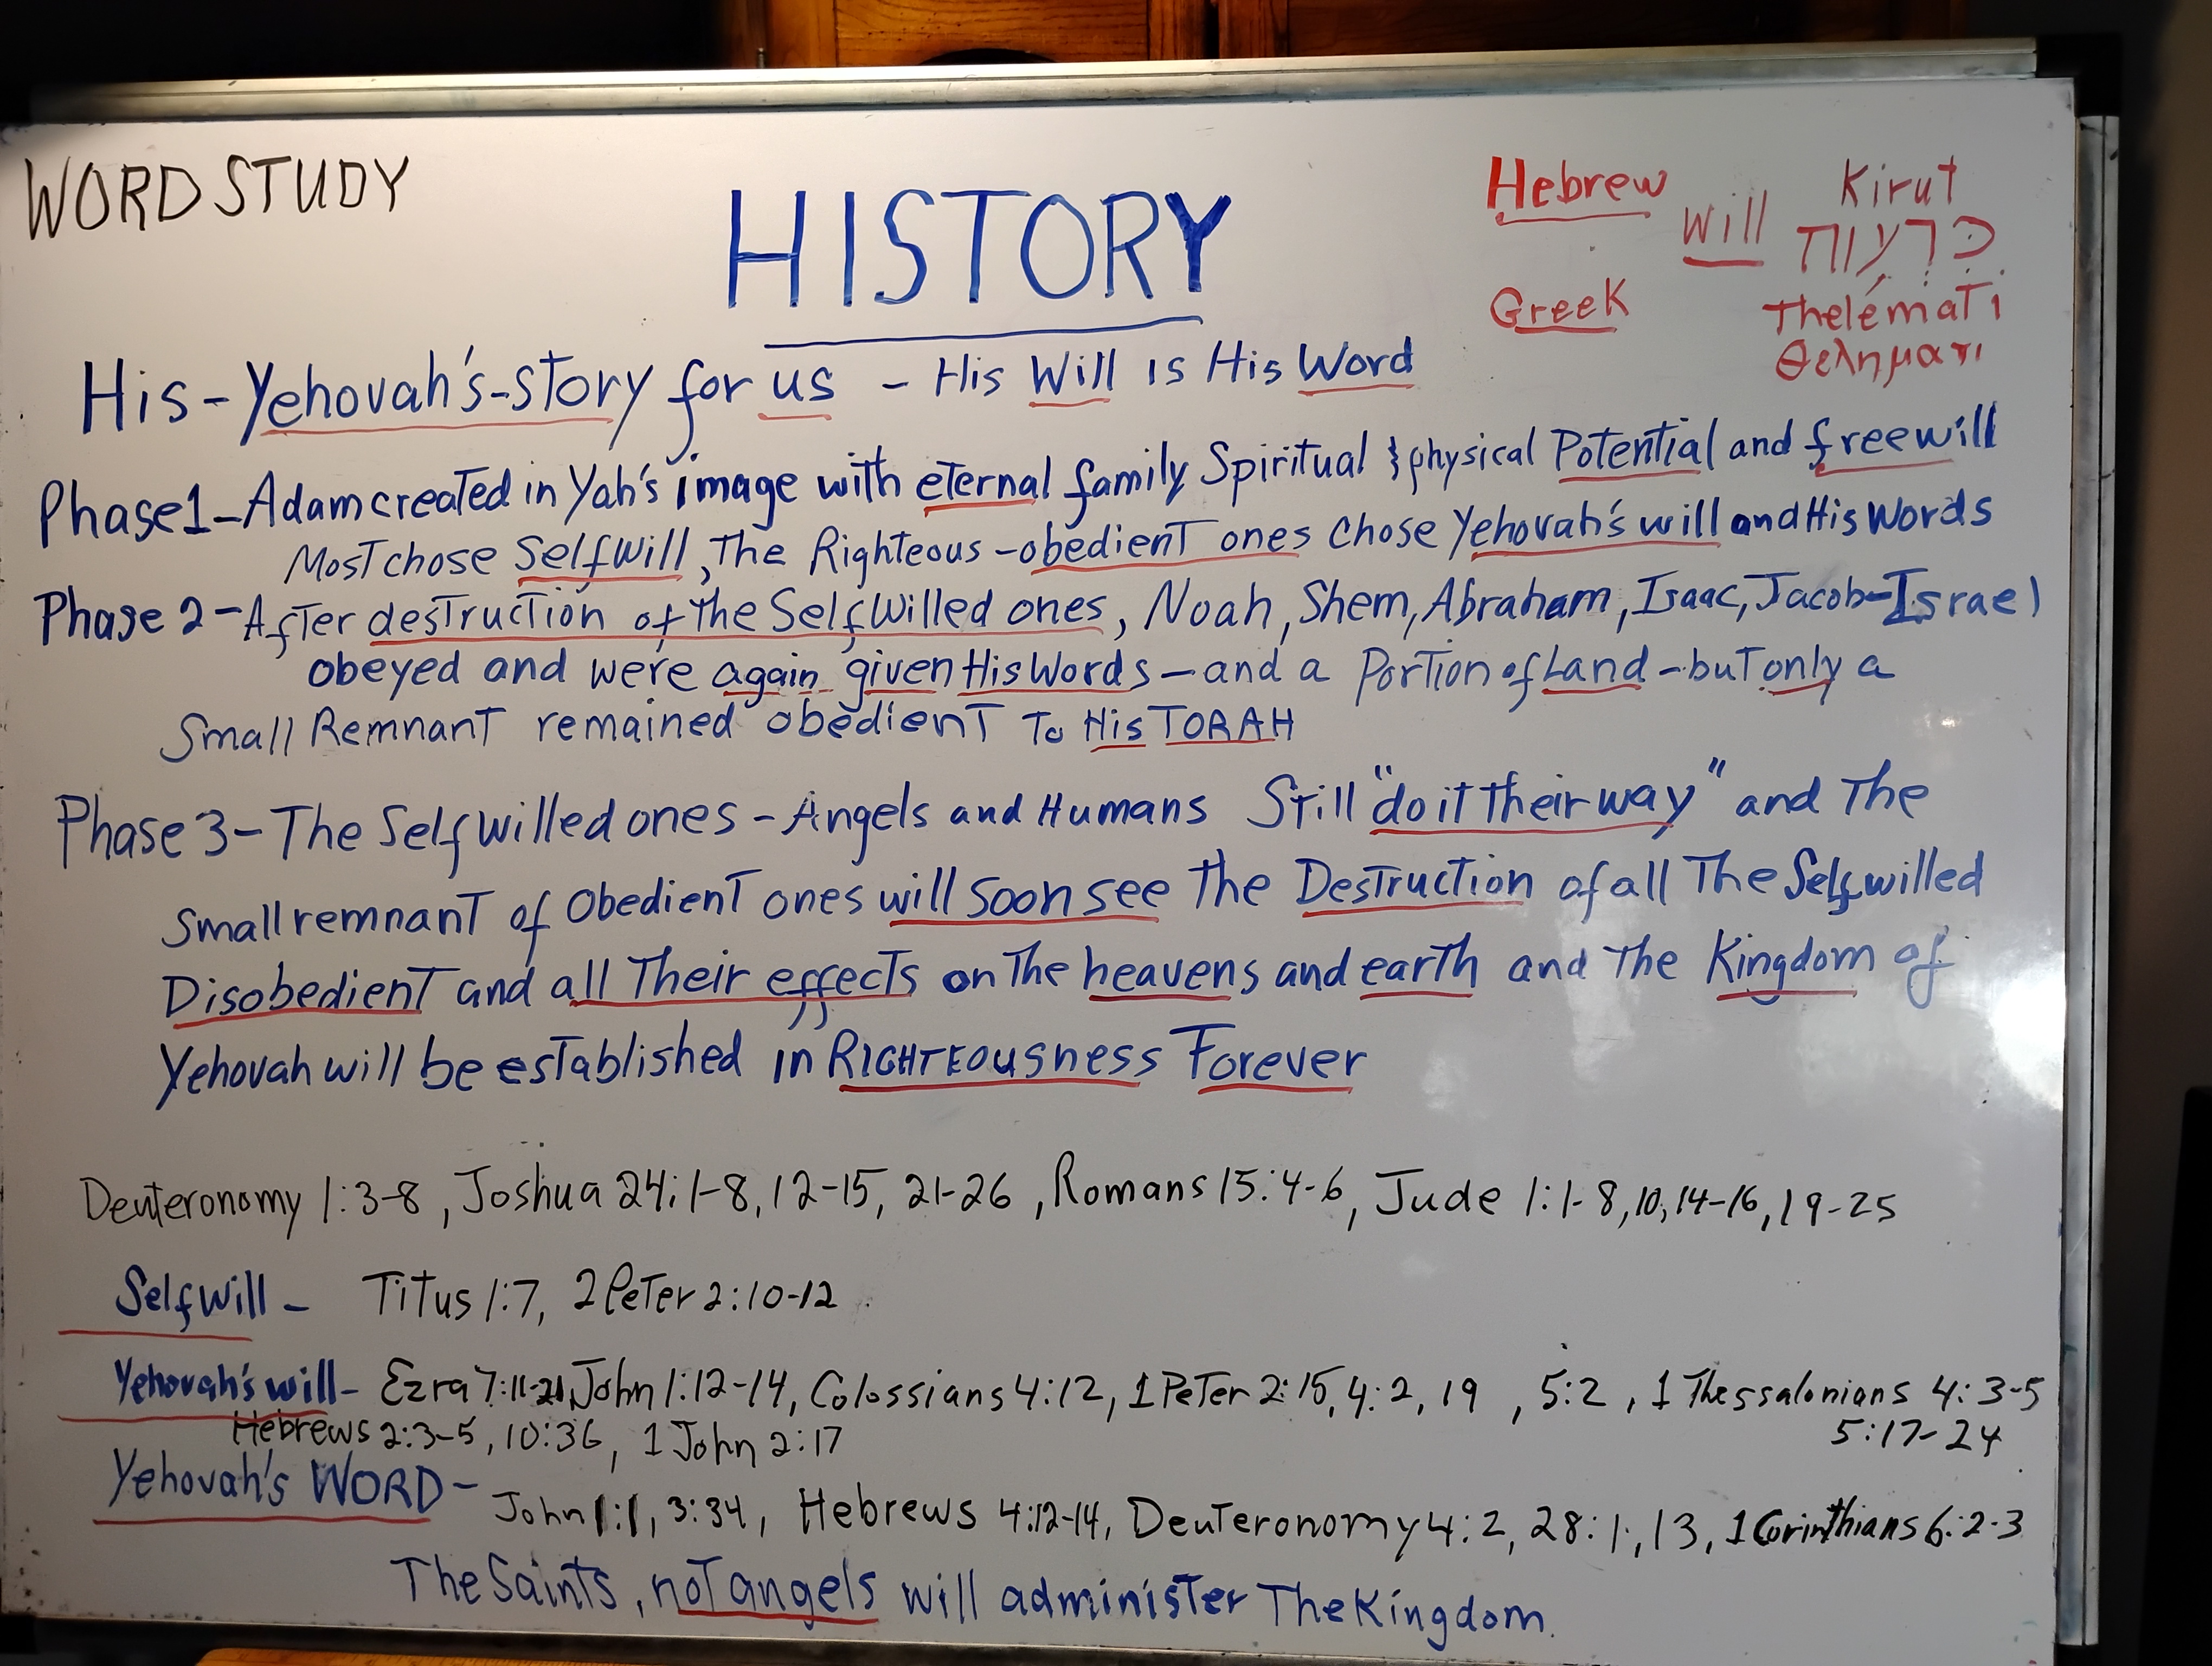 WORD STUDY
HISTORY
Hebrew
Will
Kirut
כִּרְעוּת
Greek
Thelémati
θεληματι
His-Yehovah's-story for us - His Will is His Word
Phase1-Adam created in Yah's image with eternal family Spiritual & physical Potential and freewill
Most chose Selfwill, The Righteous-obedient ones chose Yehovah's will and His Words
Phase 2-After destruction of the Selfwilled ones, Noah, Shem, Abraham, Isaac, Jacob-Israel
obeyed and were again given His Words-and a Portion of Land-but only a
Small Remnant remained obedient To His TORAH
Phase 3-The Selfwilled ones-Angels and Humans Still "do it their way" and The
Small remnant of Obedient ones will soon see the Destruction of all The Selfwilled
Disobedient and all Their effects on The heavens and earth and The Kingdom of
Yehovah will be established in RIGHTEOUSness Forever
Deuteronomy 1:3-8, Joshua 24:1-8, 12-15, 21-26, Romans 15:4-6, Jude 1:1-8, 10, 14-16, 19-25
Selfwill- Titus 1:7, 2 Peter 2:10-12
Yehovah's will- Ezra 7:11-21, John 1:12-14, Colossians 4:12, 1 Peter 2:15, 4:2, 19, 5:2, 1 Thessalonians 4:3-5
Hebrews 2:3-5, 10:36, 1 John 2:17 5:17-24
Yehovah's WORD- John 1:1, 3:34, Hebrews 4:12-14, Deuteronomy 4:2, 28:1, 13, 1 Corinthians 6:2-3
The Saints, not angels will administer The Kingdom.